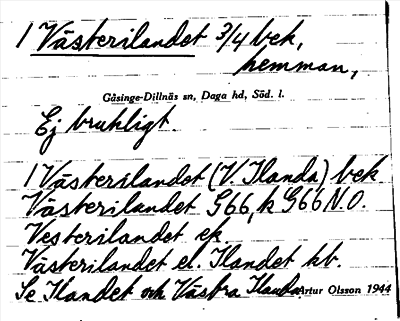 1 Västerilandet 3/4 bek,
hemman,
Gåsinge-Dillnäs sn, Daga hd, Söd. l.
Ej brukligt.
1 Västerilandet (V. Ilanda) bek
Västerilandet G66, k G66 N.O.
Vesterilandet ek
Västerilandet el. Ilandet kb.
Se Ilandet och Västra Ilanda. Artur Olsson 1944